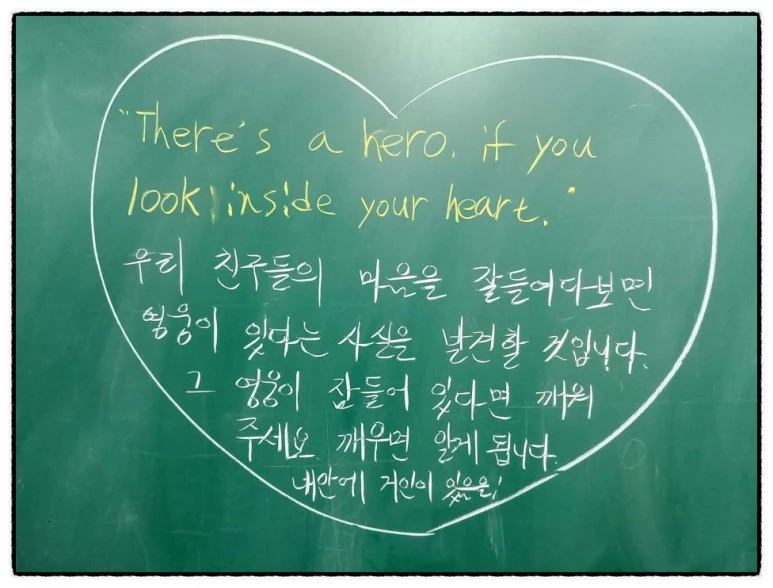 "There's a hero. if you
look inside your heart."
우리 친구들의 마음을 잘들여다보면
영웅이 있다는 사실을 발견할 것입니다.
그 영웅이 잠들어 있다면 깨워
주세요. 깨우면 알게 됩니다.
내안에 거인이 있음을!